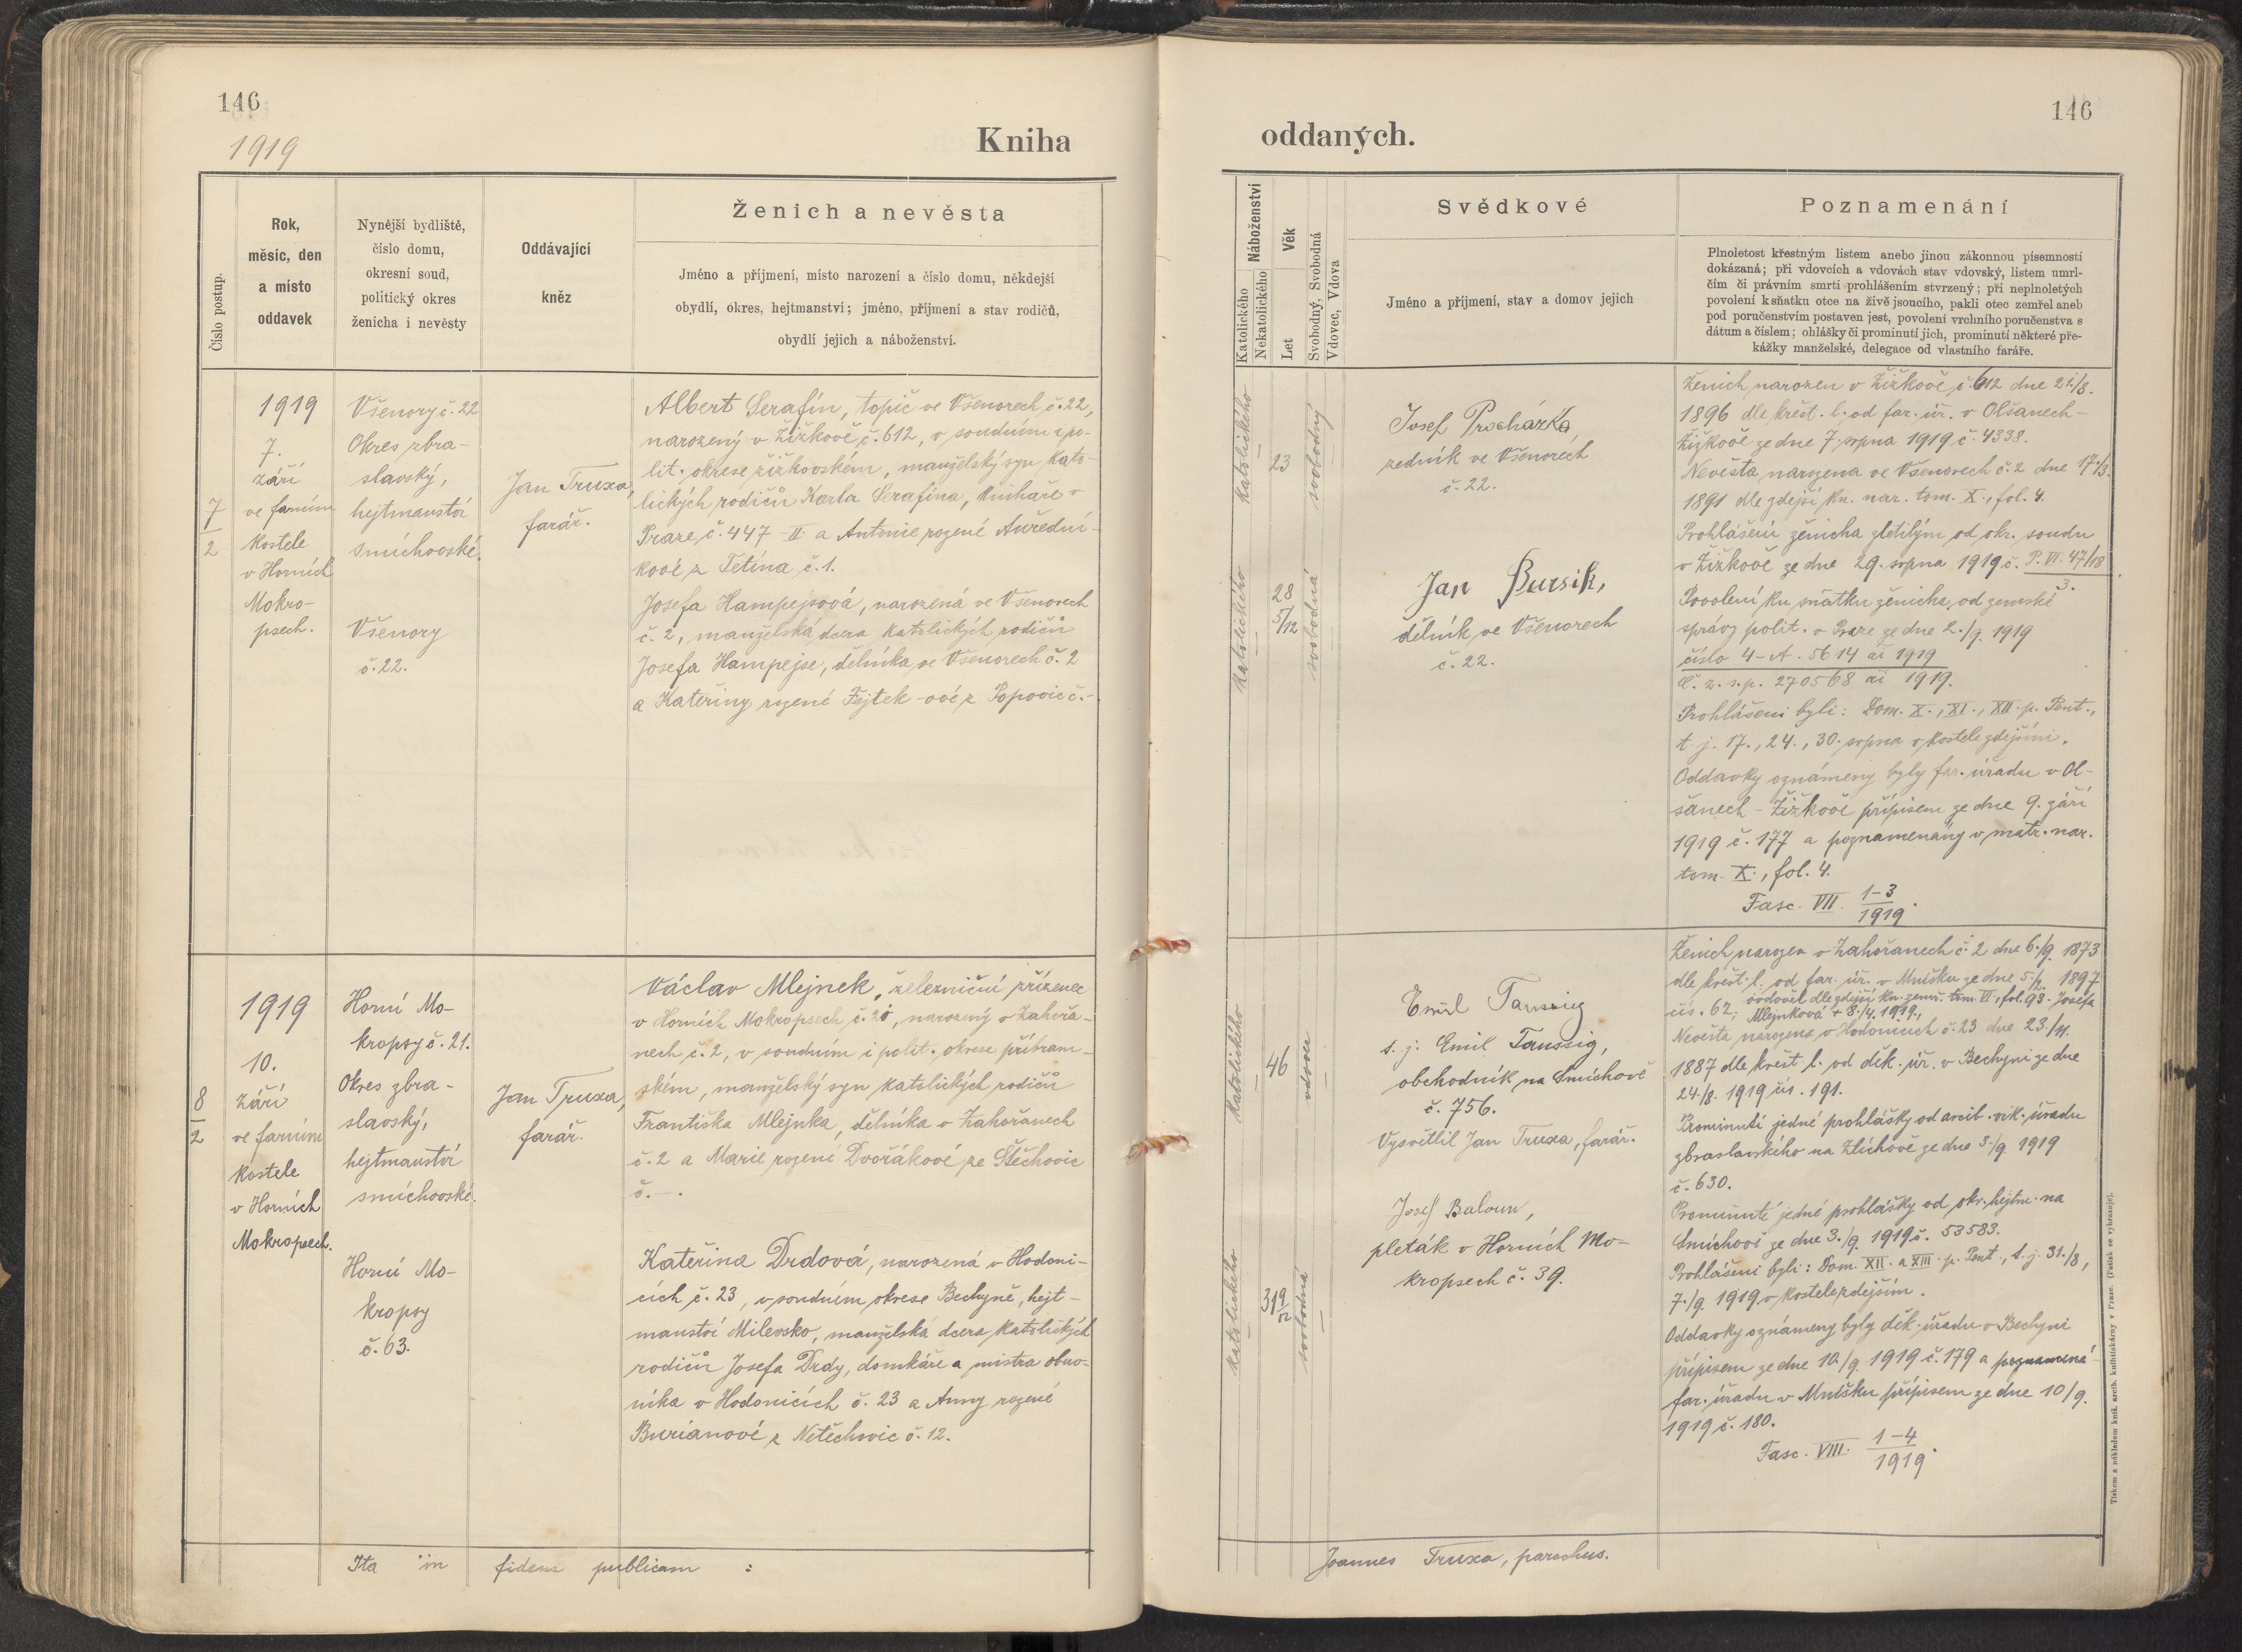 146
1919
Kniha
Číslo postup.
Rok,
měsíc, den
a místo
oddavek
Nynější bydliště,
číslo domu,
okresní soud,
politický okres
ženicha i nevěsty
Oddávající
kněz
Ženich a nevěsta
Jméno a příjmení, místo narození a číslo domu, někdejší
obydlí, okres, hejtmanství; jméno, příjmení a stav rodičů,
obydlí jejich a náboženství.
7
2
1919
7.
září
ve farním
kostele
v Horních
Mokro-
psech.
Všenory č. 22
Okres zbra-
slavský,
hejtmanství
smíchovské.
Všenory
č. 22.
Jan Truxa,
farář.
Albert Serafín, topič ve Všenorech č. 22,
narozený v Žižkově č. 612, v soudním i po-
lit. okrese žižkovském, manželský syn kato-
lických rodičů Karla Serafína, knihaře v
Praze, č. 447-II. a Antonie rozené Auředni-
kové z Tetína č. 1.
Josefa Hampejsová, narozená ve Všenorech
č. 2, manželská dcera katolických rodičů
Josefa Hampejse, dělníka ve Všenorech č. 2
a Kateřiny rozené Fejtek-ové z Popovic č. -.
8
2
1919
10.
září
ve farním
kostele
v Horních
Mokropsech.
Horní Mo-
kropsy č. 21.
Okres zbra-
slavský,
hejtmanství
smíchovské.
Horní Mo-
kropsy
č. 63.
Jan Truxa,
farář.
Václav Mlejnek, železniční zřízenec
v Horních Mokropsech č. narozený v Zahořa-
nech č. 2, v soudním i polit. okrese příbram-
ském, manželský syn katolických rodičů
Františka Mlejnka, dělníka v Zahořanech
č. 2 a Marie rozené Dvořákové ze Štěchovic
č. - .
Kateřina Drdová, narozená v Hodoni-
cích č. 23, v soudním okrese Bechyně, hejt-
manství Milevsko, manželská dcera katolických
rodičů Josefa Drdy, domkáře a mistra obuv-
níka v Hodonicích č. 23 a Anny rozené
Buriánové z Netěchovic č. 12.
Ita in fidem publicam :
146
oddaných.
Náboženství
Katolického
Nekatolického
Věk
Let
Svobodný, Svobodná
Vdovec, Vdova
Svědkové
Jméno a příjmení, stav a domov jejich
Poznamenání
Plnoletost křestným listem anebo jinou zákonnou písemností
dokázaná; při vdovcích a vdovách stav vdovský, listem umrl-
čím či právním smrti prohlášením stvrzený; při neplnoletých
povolení k sňatku otce na živě jsoucího, pakli otec zemřel aneb
pod poručenstvím postaven jest, povolení vrchního poručenstva s
dátum a číslem; ohlášky či prominutí jich, prominutí některé pře-
kážky manželské, delegace od vlastního faráře.
katolického
23
svobodný
Josef Procházka
zedník ve Všenorech
č. 22.
katolického
28
5/12
svobodná
Jan Bursík,
dělník ve Všenorech
č. 22.
Ženich narozen v Žižkově č. 612 dne 21./8.
1896 dle křest. l. od far. úř. v Olšanech-
Žižkově ze dne 7. srpna 1919 č. 4338.
Nevěsta narozena ve Všenorech č. 2 dne 17./3.
1891 dle zdejší kn. nar. tom. X., fol. 4.
Prohlášení ženicha zletilým od okr. soudu
v Žižkově ze dne 29. srpna 1919 č. P. VI. 47/18
3.
Povolení ku sňatku ženicha od zemské
správy polit. v Praze ze dne 2./9. 1919
číslo 4-A. 5614 ai 1919
č. z. s. p. 270568 ai 1919.
Prohlášeni byli: Dom. X., XI., XII. p. Pent.,
t. j. 17., 24., 30. srpna v kostele zdejším.
Oddavky oznámeny byly far. úřadu v Ol-
šanech-Žižkově přípisem ze dne 9. září
1919 č. 177 a poznamenány v matr. nar.
tom. X., fol. 4.
Fasc. VII. 1-3
1919.
katolického
46
vdovec
Emil Taussig
t. j. Emil Taussig,
obchodník na Smíchově
č. 756.
Vysvětlil Jan Truxa, farář.
katolického
31 9
12
svobodná
Josef Baloun,
pleták v Horních Mo-
kropsech č. 39.
Ženich narozen v Zahořanech č. 2 dne 6./9. 1873
dle křest. l. od far. úř. v Mníšku ze dne 5./2. 1897
čís. 62; ovdověl dle zdejší kn. zemř. tom. VI., fol. 93. Josefa
Mlejnková + 8./4. 1919.,
Nevěsta narozena v Hodonicích č. 23 dne 23./11.
1887 dle křest. l. od děk. úř. v Bechyni ze dne
24./8. 1919 čís. 191.
Prominutí jedné prohlášky od arcib. vik. úřadu
zbraslavského na Zlíchově ze dne 3./9. 1919
č. 630.
Prominutí jedné prohlášky od okr. hejtm. na
Smíchově ze dne 3./9. 1919 č. 53583.
Prohlášeni byli: Dom. XII. a XIII. p. Pent., t. j. 31./8.,
7./9. 1919 v kostele zdejším.
Oddavky oznámeny byly děk. úřadu v Bechyni
přípisem ze dne 10./9. 1919 č. 179 a
far. úřadu v Mníšku přípisem ze dne 10/9.
1919 č. 180.
Fasc. VIII. 1-4
1919.
Tiskem a nákladem kníž. arcib. knihtiskárny v Praze. (Patisk se vyhrazuje).
Joannes Truxa, parochus.